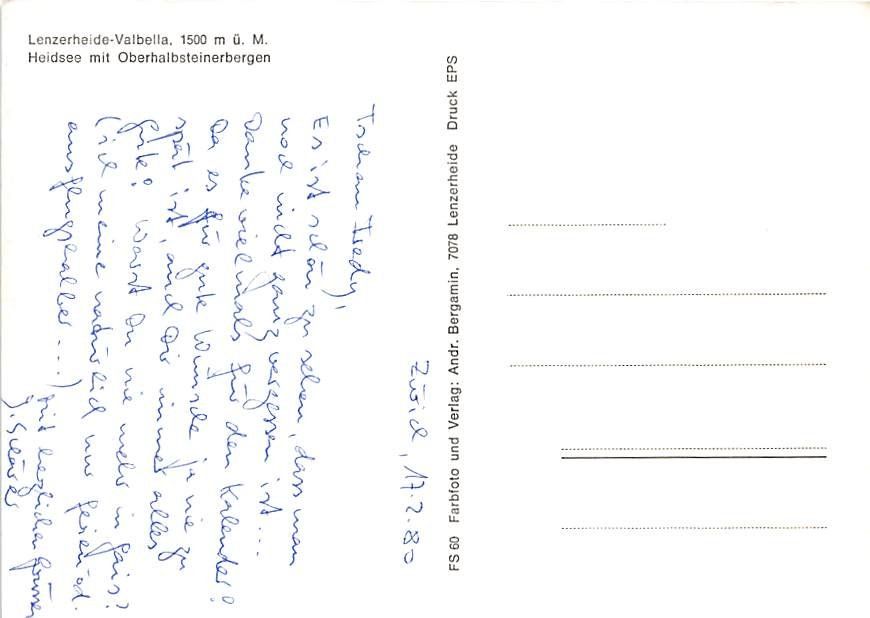 Lenzerheide-Valbella, 1500 m ü. M.
Heidsee mit Oberhalbsteinerbergen
Zürich, 17.2.80
Tschau Fredy,
Es ist schön zu sehen, dass man
noch nicht ganz vergessen ist...
Danke vielmals für den Kalender!
Da es für gute Wünsche ja nie zu
spät ist, auch Dir immer alles
Gute! Warst Du nie mehr in Gais?
(ich meine natürlich nur ferien-od.
ausflugshalber....) Mit herzlichen Grüssen
FS 60 Farbfoto und Verlag: Andr. Bergamin, 7078 Lenzerheide Druck EPS